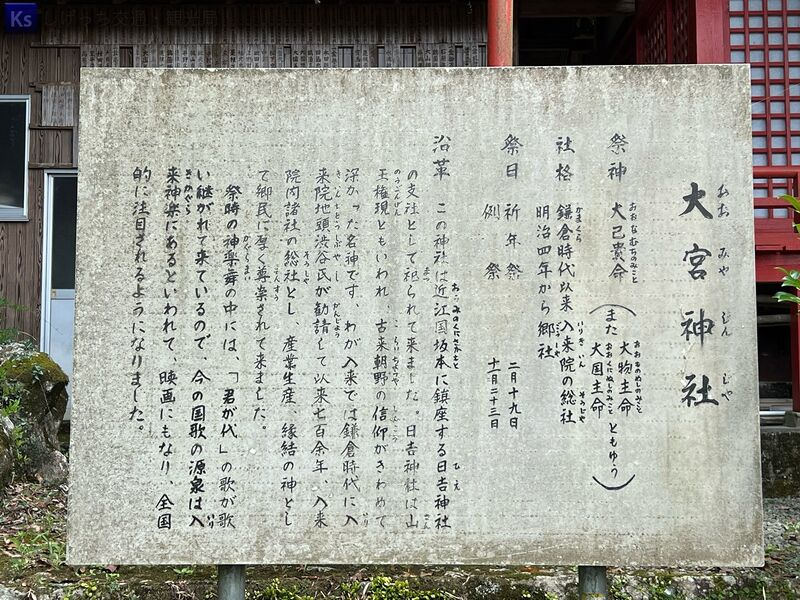 大宮神社
おおみやじんじゃ
祭神 大己貴命 (また 大物主命 大国主命 ともゆう)
おおなむちのみこと
おおものぬしのみこと
おおくにぬしのみこと
社格 鎌倉時代以来入来院の総社
明治四年から郷社
祭日 祈年祭 二月十九日
例祭 十一月二十三日
沿革 この神社は近江国坂本に鎮座する日吉神社
の支社として祀られて来ました。日吉神社は山
王権現ともいわれ、古来朝野の信仰がきわめて
深かった名神です。わが入来では鎌倉時代に入
来院地頭渋谷氏が勧請して以来七百余年、入来
院内諸社の総社とし、産業生産、縁結の神とし
て郷民に厚く尊崇されて来ました。
祭時の神楽舞の中には、「君が代」の歌が歌
い継がれて来ているので、今の国歌の源泉は入
来神楽にあるといわれて、映画にもなり、全国
的に注目されるようになりました。
Ks しげっち交通・観光局